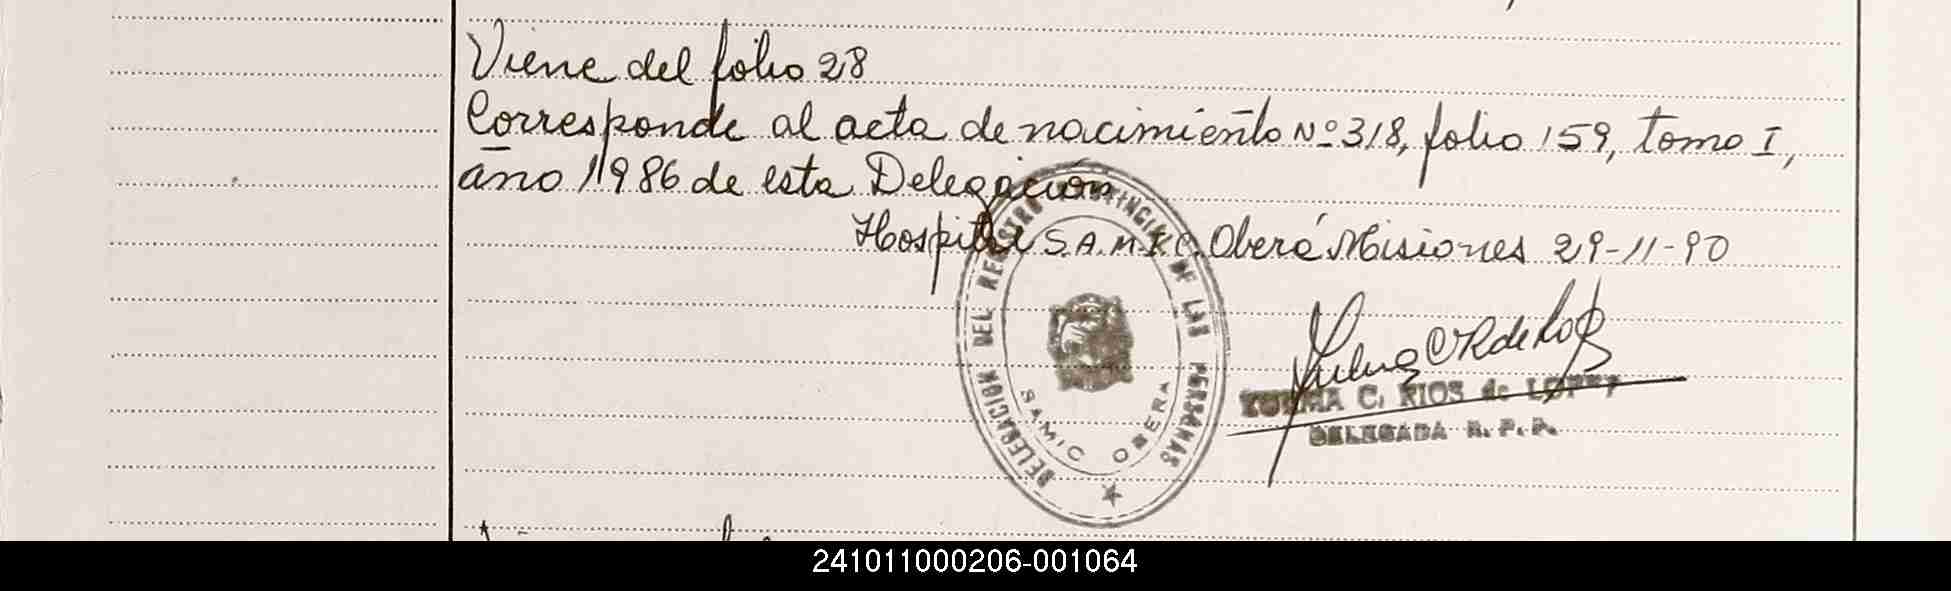 Viene del folio 28
Corresponde al acta de nacimiento Nº 318, folio 159, tomo I,
año 1986 de esta Delegación
Hospital S.A.M.I.C. Oberá Misiones 29-11-90
DELEGACION DEL REGISTRO PROVINCIAL DE LAS PERSONAS
SAMIC OBERA
C. RIOS de LOPEZ
DELEGADA R. P. P.
241011000206-001064